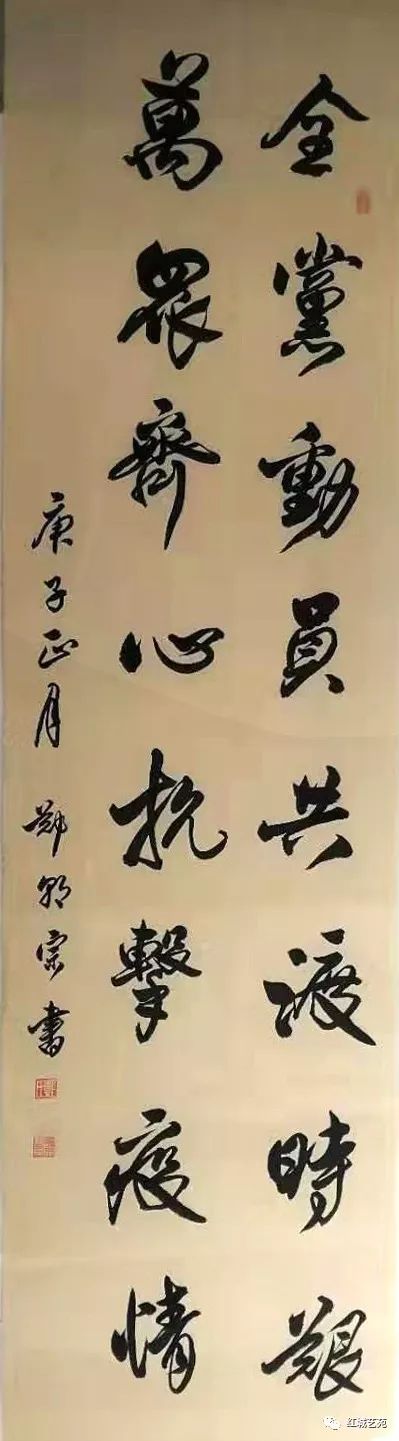 全黨動員共渡時艱
萬眾齊心抗擊疫情
庚子正月 鄭朝宗書
红城艺苑